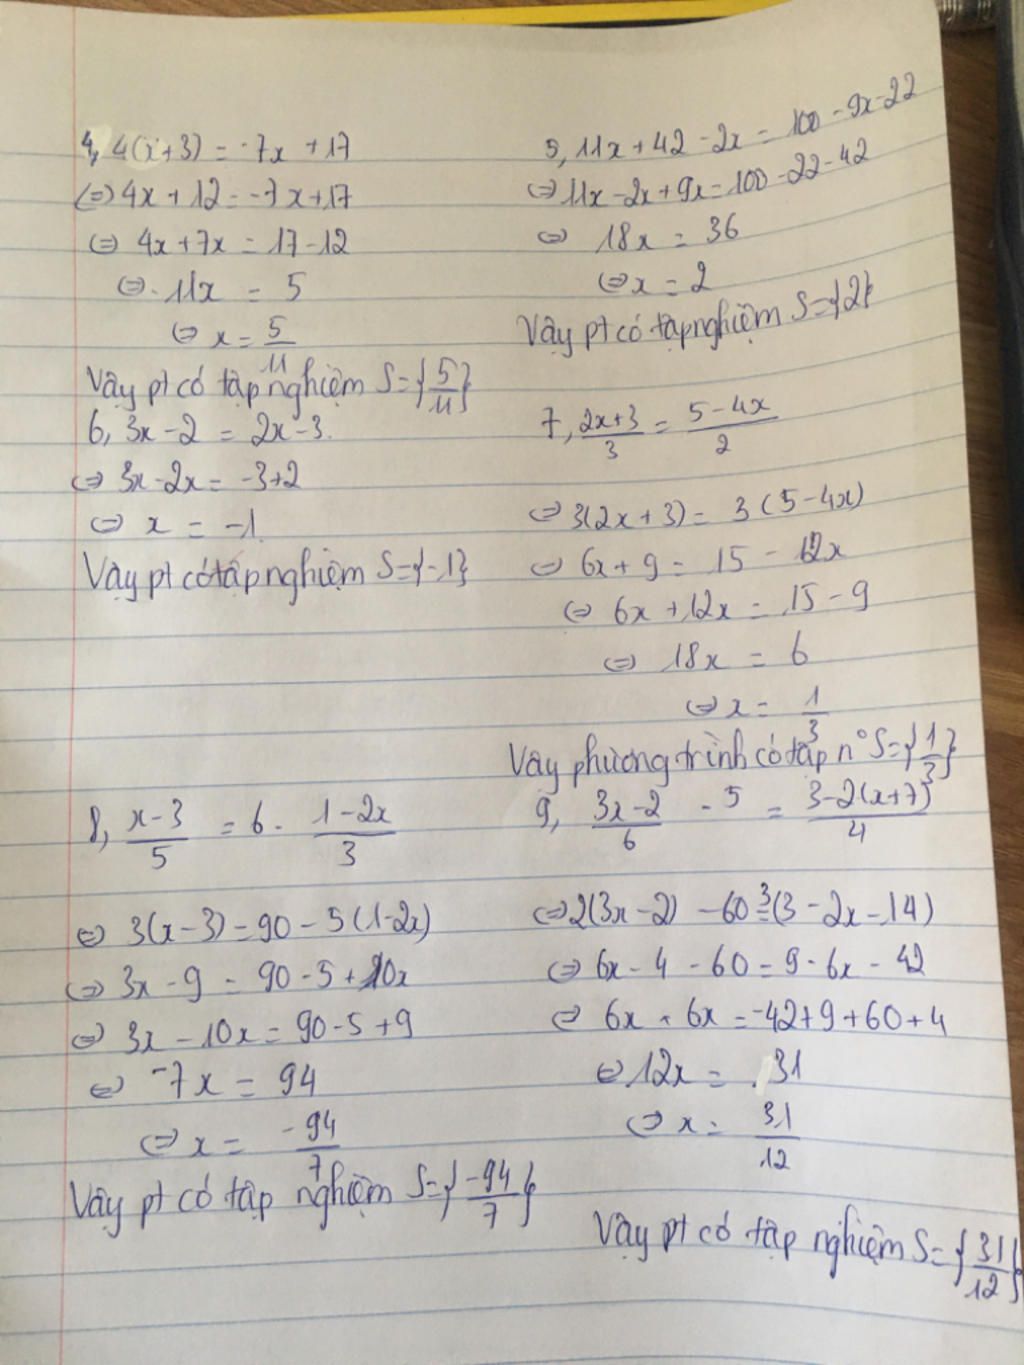 4, 4(x+3) = -7x + 17
⇔ 4x + 12 = -7x + 17
⇔ 4x + 7x = 17 - 12
⇔ 11x = 5
⇔ x = 5/11
Vậy pt có tập nghiệm S = {5/11}
5, 11x + 42 - 2x = 100 - 9x - 22
⇔ 11x - 2x + 9x = 100 - 22 - 42
⇔ 18x = 36
⇔ x = 2
Vậy pt có tập nghiệm S = {2}
6, 3x - 2 = 2x - 3
⇔ 3x - 2x = -3 + 2
⇔ x = -1
Vậy pt có tập nghiệm S = {-1}
7, (2x+3)/3 = (5-4x)/2
⇔ 3(2x + 3) = 3(5 - 4x)
⇔ 6x + 9 = 15 - 12x
⇔ 6x + 12x = 15 - 9
⇔ 18x = 6
⇔ x = 1/3
Vậy phương trình có tập n° S = {1/3}
8, (x-3)/5 = 6 - (1-2x)/3
⇔ 3(x-3) = 90 - 5(1-2x)
⇔ 3x - 9 = 90 - 5 + 10x
⇔ 3x - 10x = 90 - 5 + 9
⇔ -7x = 94
⇔ x = -94/7
Vậy pt có tập nghiệm S = {-94/7}
9, (3x-2)/6 - 5 = (3-2(x+7))/4
⇔ 2(3x-2) - 60 = 3(3 - 2x - 14)
⇔ 6x - 4 - 60 = 9 - 6x - 42
⇔ 6x + 6x = -42 + 9 + 60 + 4
⇔ 12x = 31
⇔ x = 31/12
Vậy pt có tập nghiệm S = {31/12}